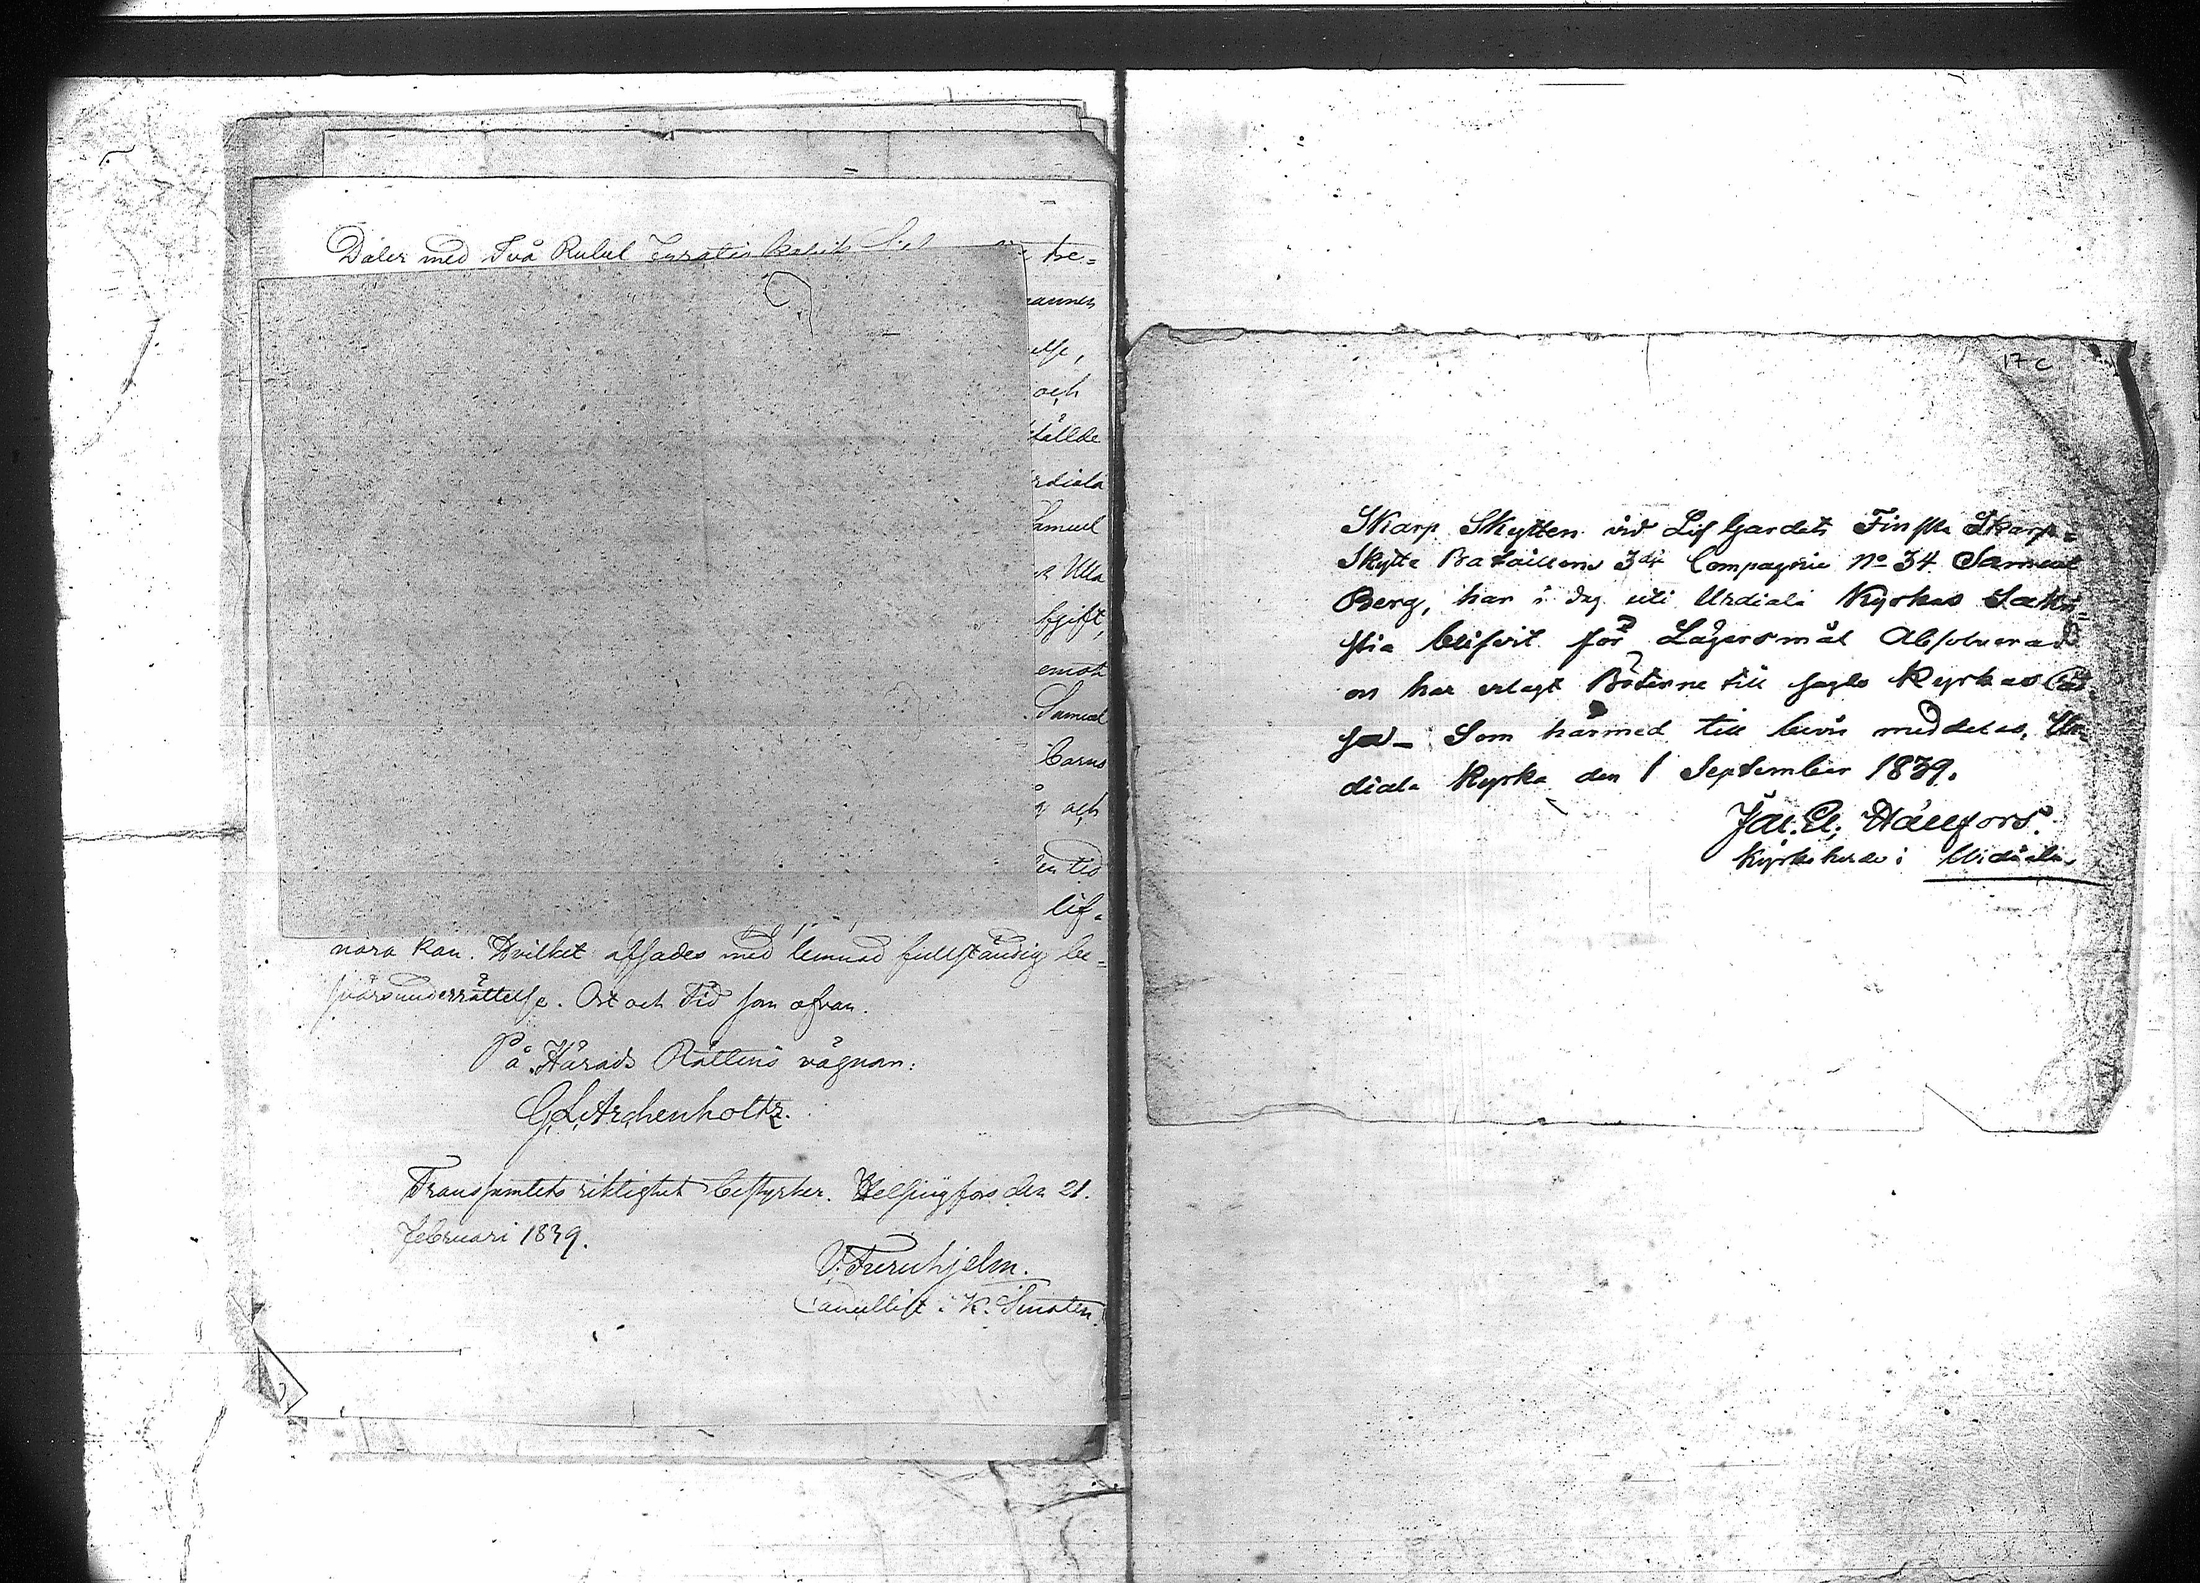 Daler med Två Rubel Fyratio Kopek
tre=
annes
else,
och
ställde
rdiala
Samuel
Ulla
fgift,
emot
Samuel
Barns
och
tid
lif=
nära kan. Hvilket afsades med lemnad fullständig be=
svärsunderrättelse. Ort och Tid som ofvan.
På Härads Rättens vägnan:
G. L. Archenholtz.
Transsumtets riktighet bestyrker. Helsingfors den 21.
Februari 1839.
V. Furuhjelm.
Cancellist i K. Senaten.
17 c
Skarp Skytten vid Lif Gardets Finska Skarp=
Skytte Bataillons 3dje Compagnie No 34 Samuel
Berg, har i dag uti Urdiala Kyrkas Sakri=
stia blifvit för Lägersmål Absolverad
on har erlagt Böterne till sagde Kyrkas Cas=
sa – Som härmed till bevis meddelas, Ur=
diala Kyrka den 1 September 1839.
Hällfors.
Kyrkoherde i Urdiala.